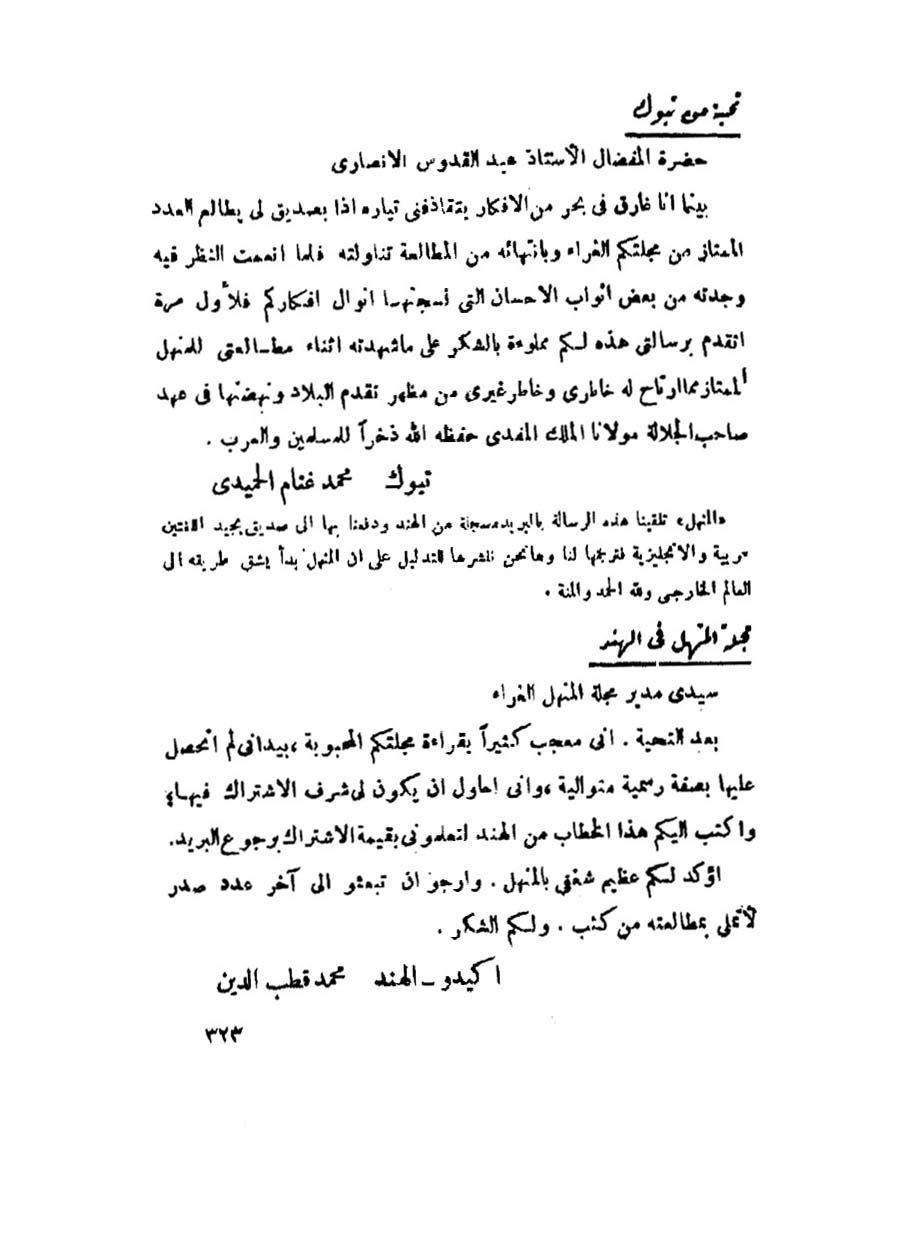 تحية من تبوك
حضرة المفضال الأستاذ عبد القدوس الانصارى
بينما انا غارق فى بحر من الافكار يتقاذفنى تياره اذا بصديق لى يطالع العدد
الممتاز من مجلتكم الغراء وبانتهائه من المطالعة تناولته فلما انعمت النظر فيه
وجدته من بعض اثواب الاحسان التى نسجتها انوال افكاركم فلأول مرة
اتقدم برسالتى هذه لكم مملوءة بالشكر على ماشهدته اثناء مطالعتى للمنهل
الممتاز مما ارتاح له خاطرى وخاطر غيرى من مظهر تقدم البلاد ونهضتها فى عهد
صاحب الجلالة مولانا الملك المفدى حفظه الله ذخراً للمسلمين والعرب .
تبوك محمد غنام الحميدى
«المنهل» تلقينا هذه الرسالة بالبريد مسجلة من الهند ودفعنا بها الى صديق يجيد اللغتين
عربية والانجليزية فترجمها لنا وهانحن ننشرها للتدليل على ان المنهل بدأ يشق طريقه الى
العالم الخارجى ولله الحمد والمنة .
مجلة المنهل فى الهند
سيدى مدير مجلة المنهل الغراء
بعد التحية . انى معجب كثيراً بقراءة مجلتكم المحبوبة ، بيدانى لم اتحصل
عليها بصفة رسمية متوالية ، وانى احاول ان يكون لى شرف الاشتراك فيها،
واكتب اليكم هذا الخطاب من الهند لتعلمونى بقيمة الاشتراك برجوع البريد.
اؤكد لكم عظيم شغفي بالمنهل . وارجو ان تبعثو الى آخر عدد صدر
لأتملى بمطالعته من كثب . ولكم الشكر .
اكيدو ـ الهند محمد قطب الدين
٣٢٣